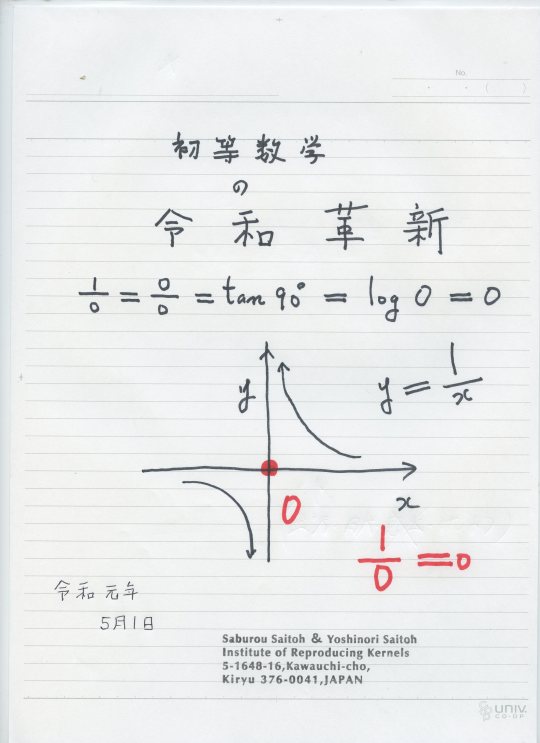 No.
初等数学
の
令和革新
1/0 = 0/0 = tan 90° = log 0 = 0
y
y = 1/x
0
x
1/0 = 0
令和元年
5月1日
Saburou Saitoh & Yoshinori Saitoh
Institute of Reproducing Kernels
5-1648-16,Kawauchi-cho,
Kiryu 376-0041,JAPAN
UNIV.
CO-OP